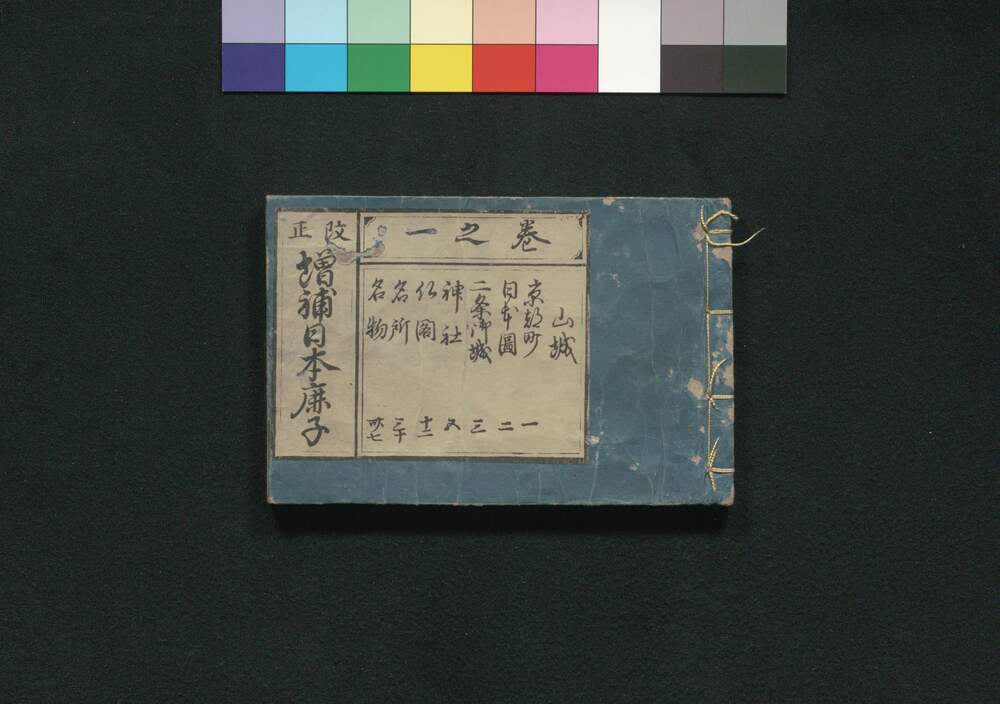 卷之一
山城
京都町 一
日本圖 二
二条御城 三
神社 五
仏閣 十二
名所 三十
名物 卅七
改正
増補日本鹿子